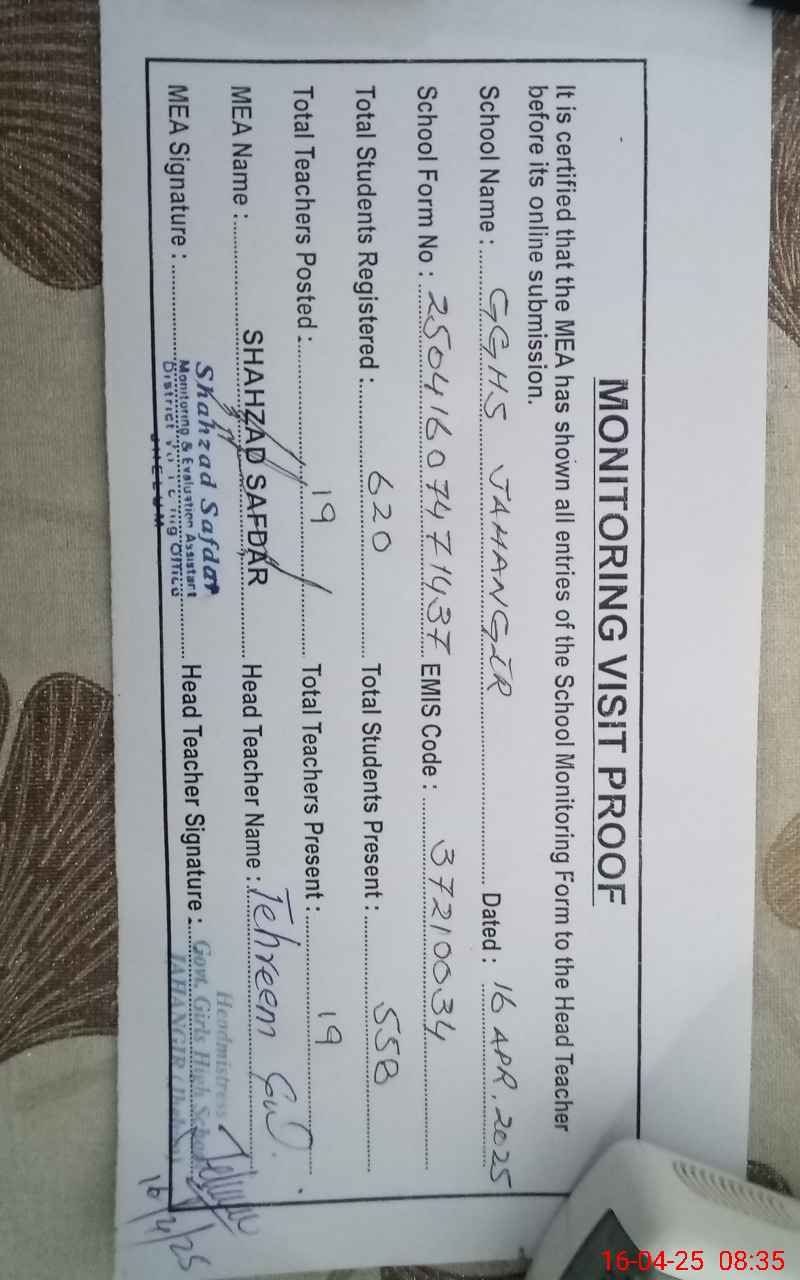 MONITORING VISIT PROOF
It is certified that the MEA has shown all entries of the School Monitoring Form to the Head Teacher
before its online submission.
School Name : GGHS JAHANGIR Dated : 16 APR, 2025
School Form No : 25041607471437 EMIS Code : 37210034
Total Students Registered : 620 Total Students Present : 558
Total Teachers Posted : 19 Total Teachers Present : 19
MEA Name : SHAHZAD SAFDAR Head Teacher Name : Tehreem Gul
MEA Signature : Head Teacher Signature :
Shahzad Safdar
Monitoring & Evaluation Assistant
District Office
JHELUM
Headmistress
Govt. Girls High School
JAHANGIR
16/4/25
16-04-25 08:35